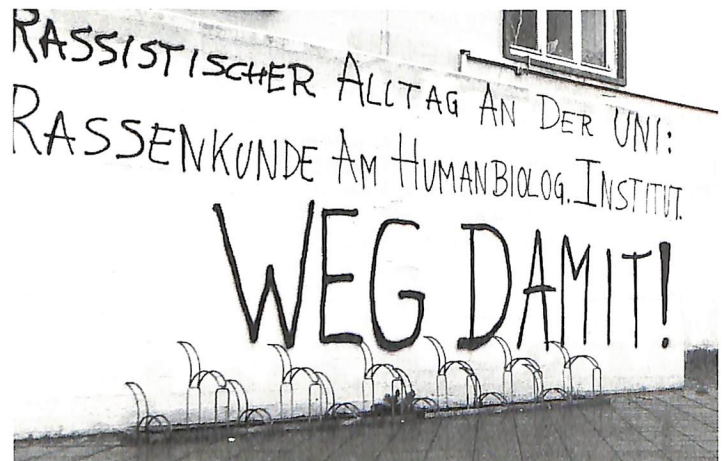 RASSISTISCHER ALLTAG AN DER UNI:
RASSENKUNDE AM HUMANBIOLOG. INSTITUT.
WEG DAMIT!